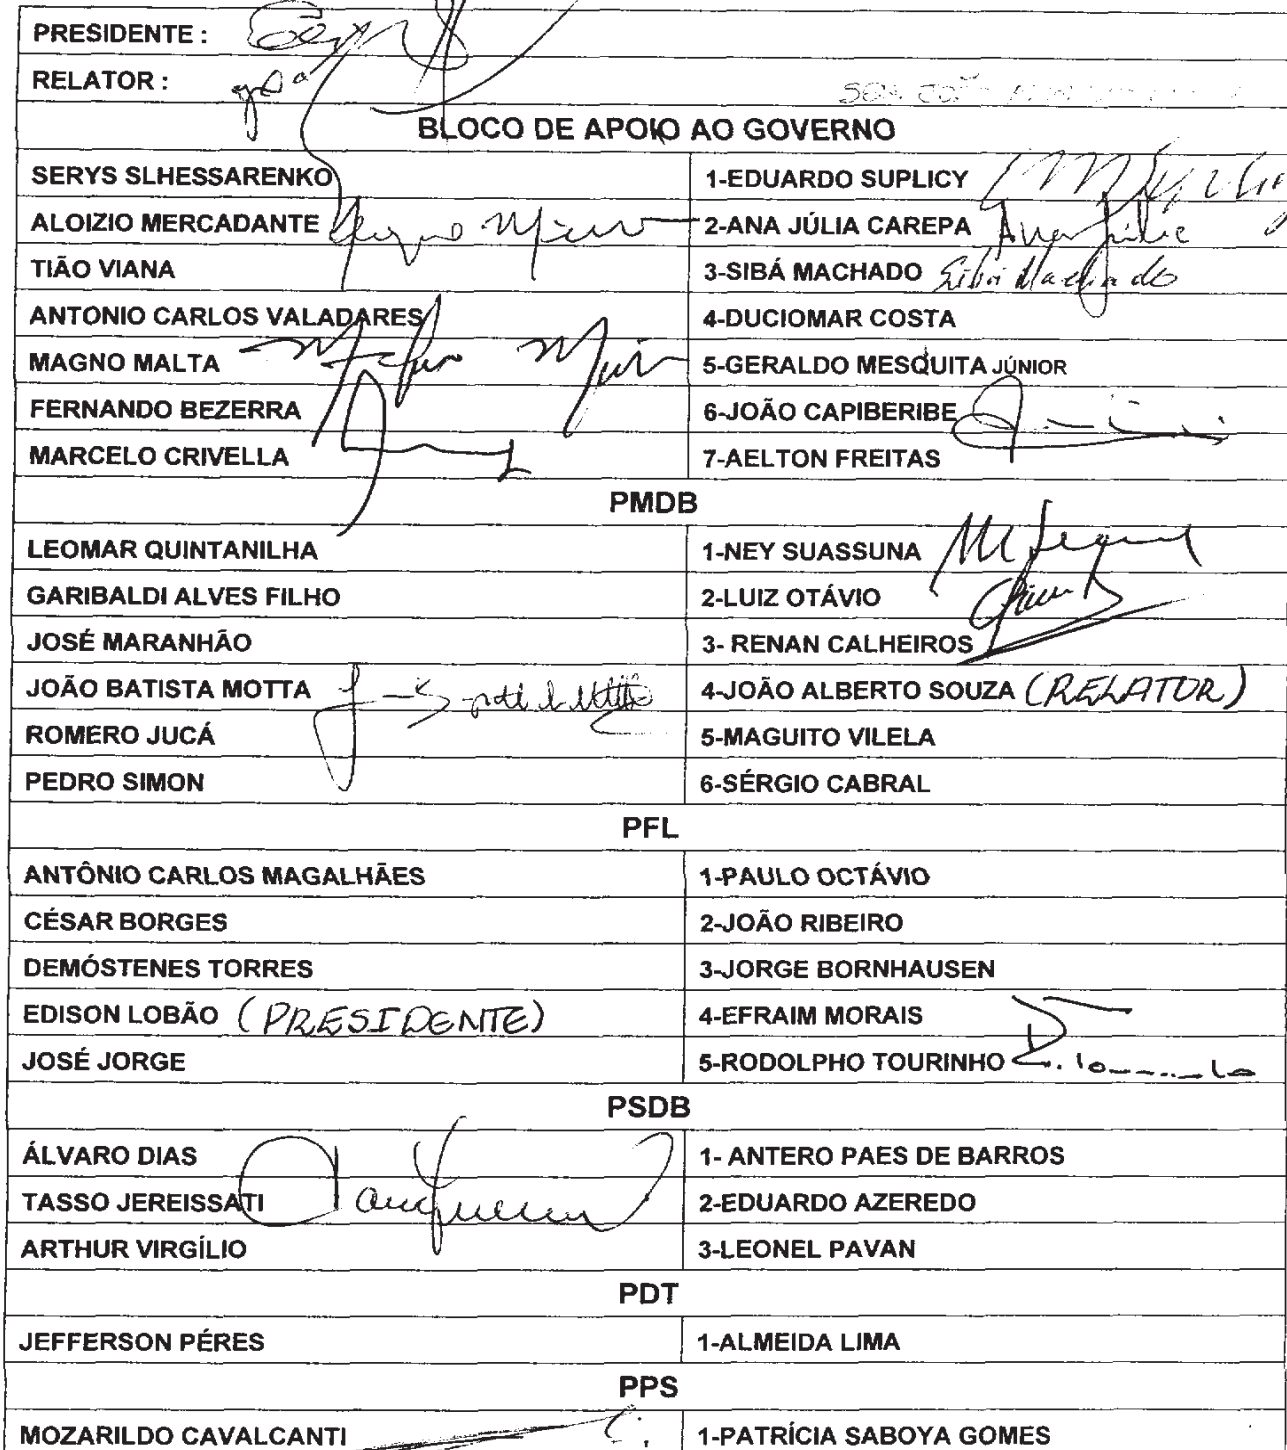 PRESIDENTE :
RELATOR :
BLOCO DE APOIO AO GOVERNO
SERYS SLHESSARENKO 1-EDUARDO SUPLICY
ALOIZIO MERCADANTE 2-ANA JÚLIA CAREPA Ana Júlia
TIÃO VIANA 3-SIBÁ MACHADO Sibá Machado
ANTONIO CARLOS VALADARES 4-DUCIOMAR COSTA
MAGNO MALTA 5-GERALDO MESQUITA JÚNIOR
FERNANDO BEZERRA 6-JOÃO CAPIBERIBE
MARCELO CRIVELLA 7-AELTON FREITAS
PMDB
LEOMAR QUINTANILHA 1-NEY SUASSUNA
GARIBALDI ALVES FILHO 2-LUIZ OTÁVIO
JOSÉ MARANHÃO 3- RENAN CALHEIROS
JOÃO BATISTA MOTTA 4-JOÃO ALBERTO SOUZA (RELATOR)
ROMERO JUCÁ 5-MAGUITO VILELA
PEDRO SIMON 6-SÉRGIO CABRAL
PFL
ANTÔNIO CARLOS MAGALHÃES 1-PAULO OCTÁVIO
CÉSAR BORGES 2-JOÃO RIBEIRO
DEMÓSTENES TORRES 3-JORGE BORNHAUSEN
EDISON LOBÃO (PRESIDENTE) 4-EFRAIM MORAIS
JOSÉ JORGE 5-RODOLPHO TOURINHO
PSDB
ÁLVARO DIAS 1- ANTERO PAES DE BARROS
TASSO JEREISSATI 2-EDUARDO AZEREDO
ARTHUR VIRGÍLIO 3-LEONEL PAVAN
PDT
JEFFERSON PÉRES 1-ALMEIDA LIMA
PPS
MOZARILDO CAVALCANTI 1-PATRÍCIA SABOYA GOMES